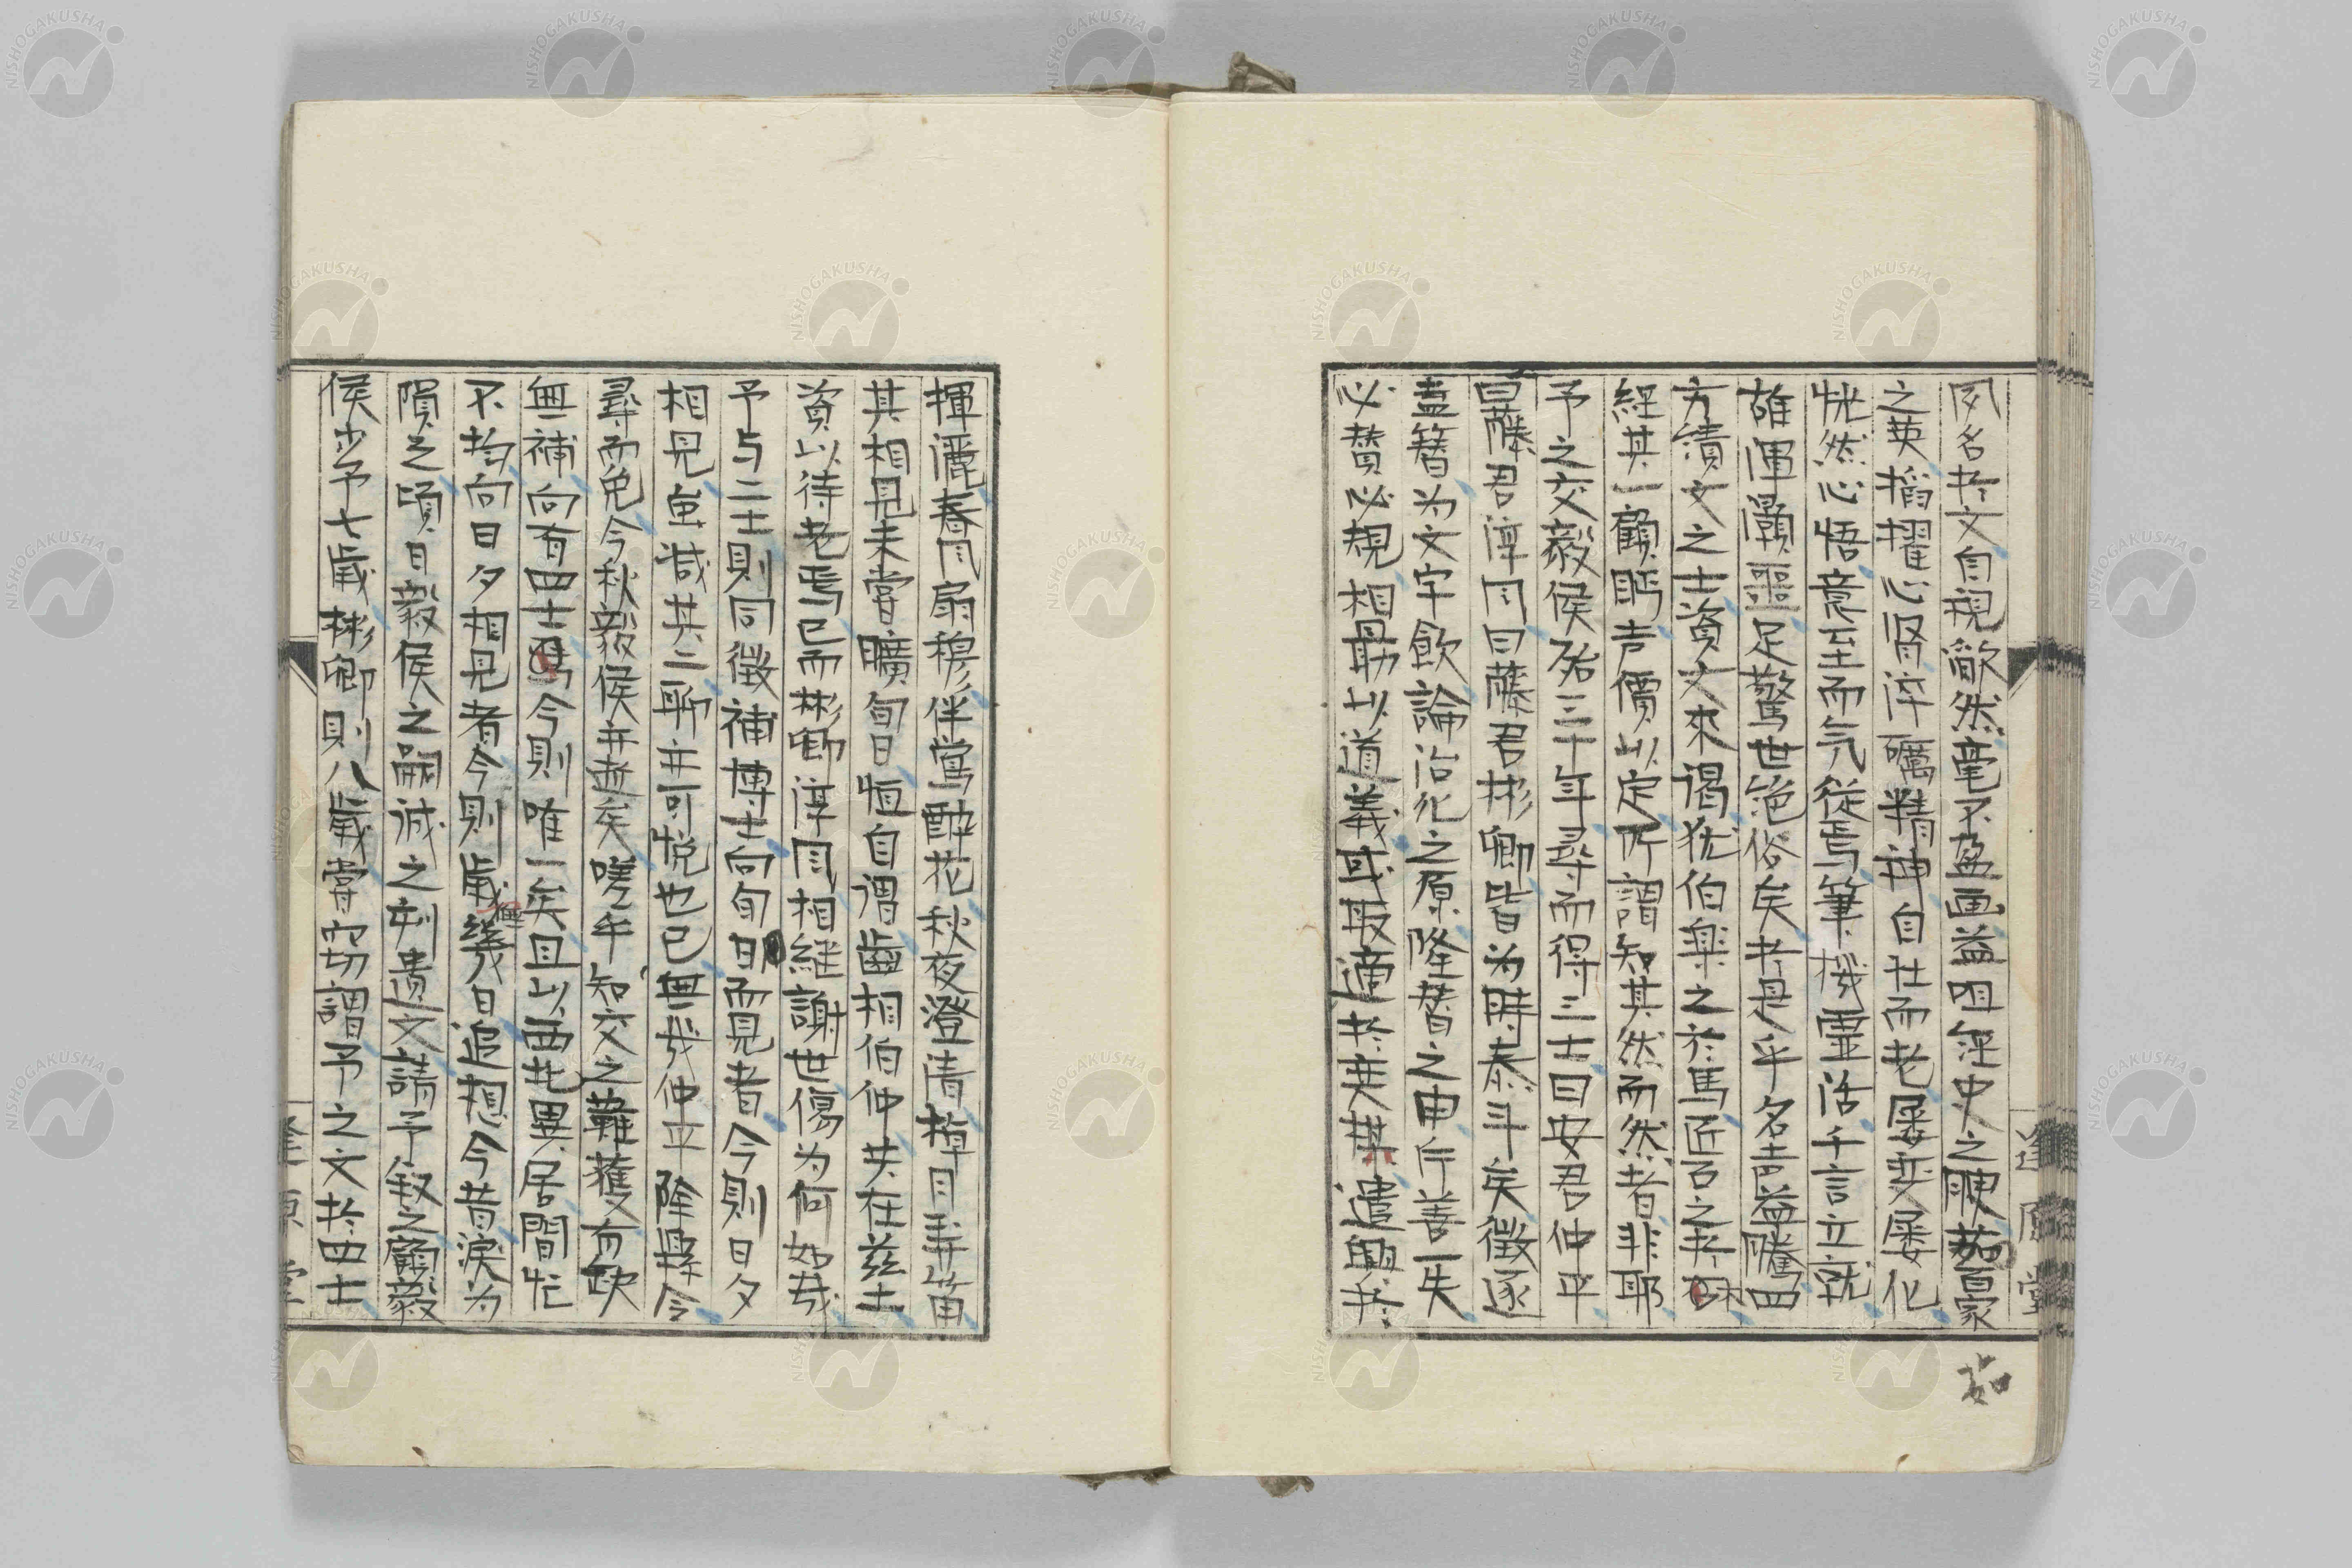 名於文自視歉然毫不盈画益咀經史之腴茹百家
之英搯擢心腎淬礪精神自壮而老屡変屡化
恍然心悟意至而気従焉筆機霊活千言立就
雄渾灝噩足驚世絶俗矣於是乎名声益騰四
方績文之士資文来謁犹伯楽之於馬匠石之於
経其一顧眄声價以定所謂知其然而然者非耶
予之交毅侯殆三十年尋而得三士曰安君仲平
曰藤君淳同曰藤君彬卿皆为時泰斗矣徴逐
盍簪为文字飲論治化之原隆替之由片善一失
必賛必規相勗以道義或取適於奕棊遣興於
揮灑春同扇穆伴鶯酔花秋夜澄清棹月弄笛
其相見未嘗曠旬日恒自谓齒相伯仲共在茲土
資以待老焉已而彬卿淳同相継謝世傷为何如哉
予与二士則同徴補博士向旬日而見者今則日夕
相見虽减其二聊亦可悦也已無幾仲平除縣令
尋而免今秋毅侯亦逝矣嗟乎知交之難獲有缺
無補向有四士焉今則唯一矣且以西北異居間忙
不均向日夕相見者今則歳僅幾日追想今昔淚为
隕之頃日毅侯之嗣诚之刻遺文請予叙之顧毅
侯少予七歳彬卿則八歳嘗窃謂予之文於四士
逢原堂
逢原堂
茹